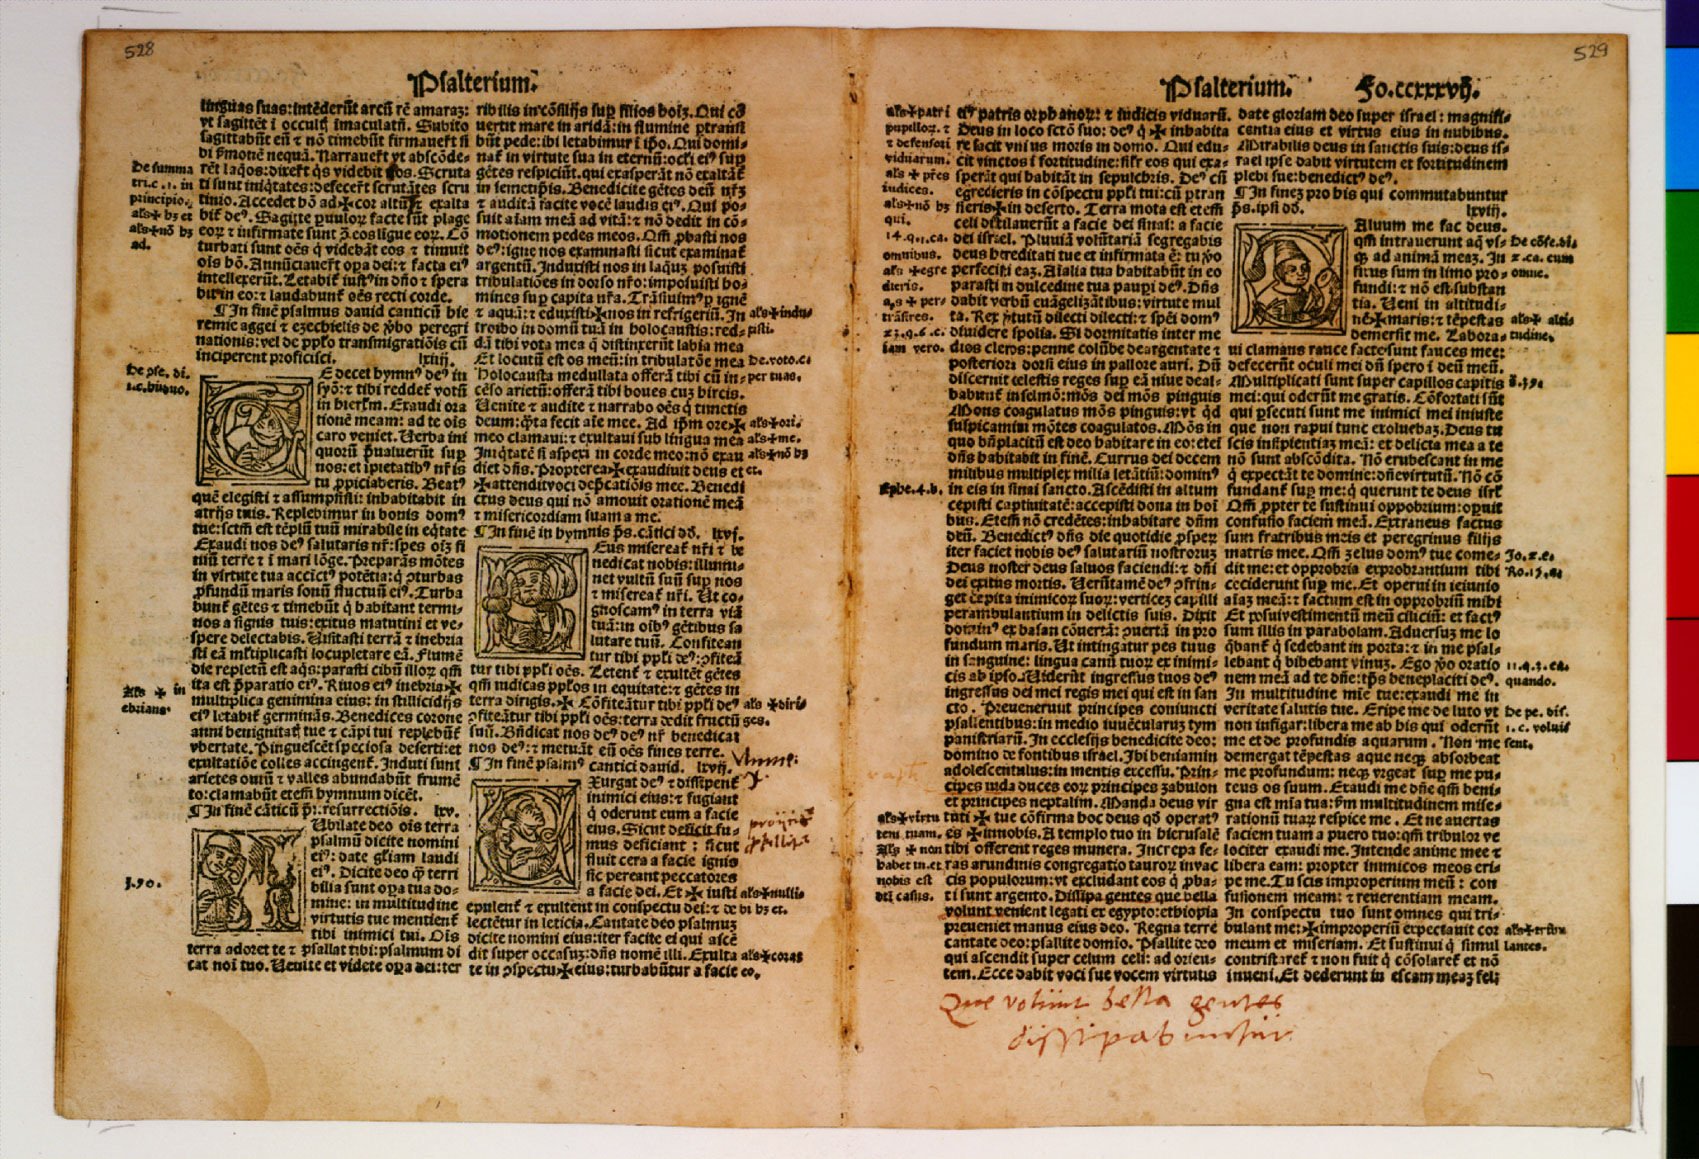 528
Psalterium.
linguas suas: intẽderũt arcũ rẽ amaraʒ:
vt sagittẽt ĩ occultʒ ĩmaculatũ. Subito
sagittabũt eũ ⁊ nõ timebũt firmauerũt si
bi ṽmonẽ nequã. Narrauerũt vt abscõde-
rẽt laq̃os: dixerũt q̃s videbit eos. Scruta
ti sunt iniq̃tates: defecerũt scrutãtes scru
tinio. Accedet hõ ad ✠ cor altũ: ⁊ exalta
bit᷑ deꝰ. Sagitte puuloꝝ facte sũt plage
eoꝝ ⁊ infirmate sunt ꝯ̃ eos ligue eoꝝ. Cõ
turbati sunt oẽs q̃ videbãt eos ⁊ timuit
oĩs hõ. Annũciauerũt oꝑa dei: ⁊ facta eiꝰ
intellexerũt. Letabit᷑ iustꝰ in dño ⁊ spera
bit in eo: ⁊ laudabunt᷑ oẽs recti corde.
¶ In finẽ psalmus dauid canticũ hie
remie aggei ⁊ ezechielis de ṽbo peregri
nationis: vel de pplo transmigratiõis cũ
inciperent proficisci. lxiiij.
TE decet hymnꝰ deꝰ in
syõ: ⁊ tibi reddet᷑ votũ
in hierl̃m. Exaudi ora
tionẽ meam: ad te oĩs
caro veniet. Verba ini
quorũ p̃ualuerũt sup̱
nos: et ĩpietatibꝰ nr̃is
tu ꝓpiciaberis. Beatꝰ
quẽ elegisti ⁊ assumpsisti: inhabitabit in
atrijs tuis. Replebimur in bonis domꝰ
tue: sctm̃ est tẽplũ tuũ mirabile in eq̃tate
Exaudi nos deꝰ salutaris nr̃: spes oĩʒ fi
niũ terre ⁊ ĩ mari lõge. Preparãs mõtes
in virtute tua accĩctꝰ potẽtia: q̃ ꝯturbas
ꝓfundũ maris sonũ fluctuũ eiꝰ. Turba
bunt᷑ gẽtes ⁊ timebũt q̃ habitant termi-
nos a signis tuis: exitus matutini et ve-
spere delectabis. Uisitasti terrã ⁊ inebria
sti eã mĩtiplicasti locupletare eã. Flumẽ
dei repletũ est aq̃s: parasti cibũ illoꝝ qm̃
ita est p̃paratio eiꝰ. Riuos eiꝰ inebria ✠
multiplica genimina eius: in stillicidijs
eiꝰ letabit᷑ germinãs. Benedices corone
anni benignitatʒ tue ⁊ cãpi tui replebũt᷑
vbertate. Pinguescẽt speciosa deserti: et
exultatiõe colles accingent᷑. Induti sunt
arietes ouiũ ⁊ valles abundabũt frumẽ
to: clamabũt etem̃ hymnum dicẽt.
¶ In finẽ cãticũ p̃s. resurrectiõis. lxv.
IUbilate deo oĩs terra
psalmũ dicite nomini
eiꝰ: date gl̃iam laudi
eiꝰ. Dicite deo q̃ terri
bilia sunt oꝑa tua do-
mine: in multitudine
virtutis tue mentient᷑
tibi inimici tui. Oĩs
terra adoret te ⁊ psallat tibi: psalmum di
cat noĩ tuo. Uenite et videte oꝑa dei: ter
De summa
tri. c. i. in
principio.
als ✠ hʒ et
als ✠ nõ hʒ
ad.
De pse. di.
i. c. biguo.
Als ✠ in
ebrians
I. 90.
ribilis in cõsilijs sup̱ filios hoĩʒ. Qui cõ
uertit mare in aridã: in flumine ꝑtransi
bũt pede: ibi letabimur ĩ ip̃o. Qui domi-
nat᷑ in virtute sua in eternũ: ocl̃i eiꝰ sup̱
gẽtes respiciũt. qui exasperãt nõ exaltẽt᷑
in semetip̃is. Benedicite gẽtes deũ nr̃ʒ
⁊ auditã facite vocẽ laudis eiꝰ. Qui po-
suit aĩam meã ad vitã: ⁊ nõ dedit in cõ-
motionem pedes meos. Qm̃ ꝓbasti nos
deꝰ: igne nos examinasti sicut examinat᷑
argentũ. Induxisti nos in laq̃uʒ posuisti
tribulatiões in dorso nr̃o: imposuisti ho-
mines sup̱ capita nr̃a. Trãsiuimꝰ ꝑ ignẽ
⁊ aquã: ⁊ eduxisti ✠ nos in refrigeriũ. In
troibo in domũ tuã in holocaustis: red-
dã tibi vota mea q̃ distinxerũt labia mea
Et locutũ est os meũ: in tribulatõe mea
Holocausta medullata offerã tibi cũ in-
cẽso arietũ: offerã tibi boues cuʒ hircis.
Uenite ⁊ audite ⁊ narrabo oẽs q̃ timetis
deum: q̃ta fecit aĩe mee. Ad ip̃m ore ✠
meo clamaui: ⁊ exultaui sub lingua mea
Iniq̃tatẽ si aspexi in corde meo: nõ exau
diet dñs. Propterea ✠ exaudiuit deus et
✠ attendit voci dep̃catiõis mee. Benedi
ctus deus qui nõ amouit orationẽ meã
⁊ misericordiam suam a me.
¶ In finẽ in hymnis p̃s. cãtici dđ. lxvj.
DEus misereat᷑ nr̃i ⁊ be
nedicat nobis: illumi-
net vultũ suũ sup̱ nos
⁊ misereat᷑ nr̃i. Ut co-
gnoscamꝰ in terra viã
tuã: in oĩbꝰ gẽtibus sa
lutare tuũ. Confitean
tur tibi ppl̃i deꝰ: ꝯfiteã
tur tibi ppl̃i oẽs. Letent᷑ ⁊ exultẽt gẽtes
qm̃ iudicas ppl̃os in equitate: ⁊ gẽtes in
terra dirigis. ✠ Cõfiteãtur tibi ppl̃i deꝰ
ꝯfiteãtur tibi ppl̃i oẽs: terra dedit fructũ
suũ. Bñdicat nos deꝰ deꝰ nr̃ benedicat
nos deꝰ: ⁊ metuãt eũ oẽs fines terre.
¶ In finẽ psalmꝰ cantici dauid. lxvij.
EXurgat deꝰ ⁊ dissipent᷑
inimici eius: ⁊ fugiant
q̃ oderunt eum a facie
eius. Sicut deficit fu-
mus deficiant: sicut
fluit cera a facie ignis
sic pereant peccatores
a facie dei. Et ✠ iusti
epulent᷑ ⁊ exultent in conspectu dei: ⁊ de
lectẽtur in leticia. Cantate deo psalmuʒ
dicite nomini eius: iter facite ei qui ascẽ
dit super occasuʒ: dñs nomẽ illi. Exulta
te in ꝯspectu ✠ eius: turbabũtur a facie eo.
als ✠ indu-
xisti.
De. voto. c.
per tuas.
als ✠ ori.
als ✠ me.
als ✠ nõ hʒ
et.
als ✠ diri-
ges.
als ✠ nulli-
bi hʒ et.
als ✠ coram
Psalterium. Fo. ccxxxvij.
529
eiꝰ patris orphanoꝝ: ⁊ iudicis viduarũ.
Deus in loco sctõ suo: deꝰ q̃ ✠ inhabita
re facit vniꝰ moris in domo. Qui edu-
cit vinctos ĩ fortitudine: sil̃r eos qui exa-
sperãt qui habitãt in sepulchris. Deꝰ cũ
egredieris in cõspectu ppl̃i tui: cũ ꝑtran
sieris ✠ in deserto. Terra mota est etem̃
celi distilauerũt a facie dei sinai: a facie
dei israel. Pluuiã volũtariã segregabis
deus hereditati tue et infirmata ẽ: tu ṽo
perfecisti eaʒ. Aĩalia tua habitabũt in eo
parasti in dulcedine tua pauꝑi deꝰ. Dñs
dabit verbũ euãgelizãtibus: virtute mul
ta. Rex ṽtutũ dilecti dilecti: ⁊ spẽi domꝰ
diuidere spolia. Si dormiatis inter me
dios cleros: penne colũbe deargentate ⁊
posteriora dorsi eius in pallore auri. Dũ
discernit celestis reges sup̱ eã niue deal-
babunt᷑ in selmõ: mõs dei mõs pinguis
Mons coagulatus mõs pinguis: vt q̃d
suspicamini mõtes coagulatos. Mõs in
quo bñplacitũ est deo habitare in eo: etem̃
dñs habitabit in finẽ. Currus dei decem
milibus multiplex milia letãtiũ: dominꝰ
in eis in sinai sancto. Ascẽdisti in altum
cepisti captiuitatẽ: accepisti dona in hoĩ
bus. Etem̃ nõ credẽtes: inhabitare dñm
deũ. Benedictꝰ dñs die quotidie ꝓsper̃
iter faciet nobis deꝰ salutariũ nostroruʒ
Deus noster deus saluos faciendi: ⁊ dñi
dei exitus mortis. Uerũtamẽ deꝰ ꝯfrin-
get cꝑita inimicoꝝ suoꝝ: verticeʒ capilli
perambulantium in delictis suis. Dixit
dominꝰ ex basan cõuertã: ꝯuertã in pro
fundum maris. Ut intingatur pes tuus
in sanguine: lingua canũ tuoꝝ ex inimi-
cis ab ipso. Uiderũt ingressus tuos deꝰ
ingressus dei mei regis mei qui est in san
cto. Preuenerunt principes coniuncti
psallentibus: in medio iuuẽcularuʒ tym
panistriarũ. In ecclesijs benedicite deo:
domino de fontibus israel. Ibi beniamin
adolescentulus: in mentis excessu. Prin-
cipes iuda duces eoꝝ principes zabulon
et principes neptalim. Manda deus vir
tuti ✠ tue cõfirma hoc deus qđ operatꝰ
es ✠ in nobis. A templo tuo in hierusalẽ
tibi offerent reges munera. Increpa fe-
ras arundinis congregatio tauroꝝ in vac
cis populorum: vt excludant eos q̃ ꝓba-
ti sunt argento. Dissipa gentes que bella
volunt venient legati ex egypto: ethiopia
preueniet manus eius deo. Regna terre
cantate deo: psallite domĩo. Psallite deo
qui ascendit super celum celi: ad orien-
tem. Ecce dabit voci sue vocem virtutis
als ✠ patri
pupilloꝝ. ⁊
⁊ defensori
viduarum.
als ✠ p̃res
iudices.
als ✠ nõ hʒ
qui.
14. q. 1. ca.
omnibus.
als ✠ egre
dieris.
als ✠ per-
trãsires.
23. q. 6. c.
iam vero.
Ephe. 4. b.
als ✠ virtu
tem tuam.
Als ✠ non
habet in. et
nobis est
dti casus.
date gloriam deo super israel: magnifi-
centia eius et virtus eius in nubibus.
Mirabilis deus in sanctis suis: deus is-
rael ipse dabit virtutem et fortitudinem
plebi sue: benedictꝰ deꝰ.
¶ In fineʒ pro his qui commutabuntur
p̃s. ipsi dđ. lxviij.
SAluum me fac deus.
qm̃ intrauerunt aq̃ vs-
q̃ ad animã meaʒ. In
fixus sum in limo pro-
fundi: ⁊ nõ est substan
tia. Ueni in altitudi-
nẽ ✠ maris: ⁊ tẽpestas
demersit me. Labora-
ui clamans rauce facte sunt fauces mee:
defecerũt oculi mei dũ spero ĩ deũ meũ.
Multiplicati sunt super capillos capitis
mei: qui oderũt me gratis. Cõfortati sũt
qui ꝑsecuti sunt me inimici mei iniuste
que non rapui tunc exoluebaʒ. Deus tu
scis insipientiaʒ meã: et delicta mea a te
nõ sunt abscõdita. Nõ erubescant in me
q̃ expectãt te domine: dñe virtutũ. Nõ cõ
fundant᷑ sup̱ me: q̃ querunt te deus isrl̃
Qm̃ ꝓpter te sustinui opprobrium: oꝑuit
confusio faciem meã. Extraneus factus
sum fratribus meis et peregrinus filijs
matris mee. Qm̃ zelus domꝰ tue come-
dit me: et opprobria exprobrantium tibi
ceciderunt sup̱ me. Et operui in ieiunio
aĩaʒ meã: ⁊ factum est in opprobriũ mihi
Et posui vestimentũ meũ ciliciũ: et factꝰ
sum illis in parabolam. Aduersuʒ me lo
q̃bant᷑ q̃ sedebant in porta: ⁊ in me psal-
lebant q̃ bibebant vinuʒ. Ego ṽo oratio
nem meã ad te dñe: tp̃s beneplaciti deꝰ.
In multitudine mĩe tue: exaudi me in
veritate salutis tue. Eripe me de luto vt
non infigar: libera me ab his qui oderũt
me et de profundis aquarum. Non me
demergat tẽpestas aque neqʒ absorbeat
me profundum: neqʒ vrgeat sup̱ me pu-
teus os suum. Exaudi me dñe qm̃ beni-
gna est mĩa tua: ẽm multitudinem mise-
rationũ tuaꝝ respice me. Et ne auertas
faciem tuam a puero tuo: qm̃ tribulor ve
lociter exaudi me. Intende anime mee ⁊
libera eam: propter inimicos meos eri-
pe me. Tu scis improperium meũ: con
fusionem meam: ⁊ reuerentiam meam.
In conspectu tuo sunt omnes qui tri-
bulant me: ✠ improperiũ expectauit cor
meum et miseriam. Et sustinui q̃ simul
contristaret᷑ ⁊ non fuit q̃ cõsolaret᷑ et nõ
inueni. Et dederunt in escam meaʒ fel:
De cõse. di.
2. ca. cum
omne.
als ✠ alti
tudine.
Jo. 2. c.
Ro. 15. a.
11. q. 3. ca.
quando.
De pe. dis.
1. c. voluis
sent.
als ✠ tribu
lantes.
Que volunt bella gentes
dissipabuntur